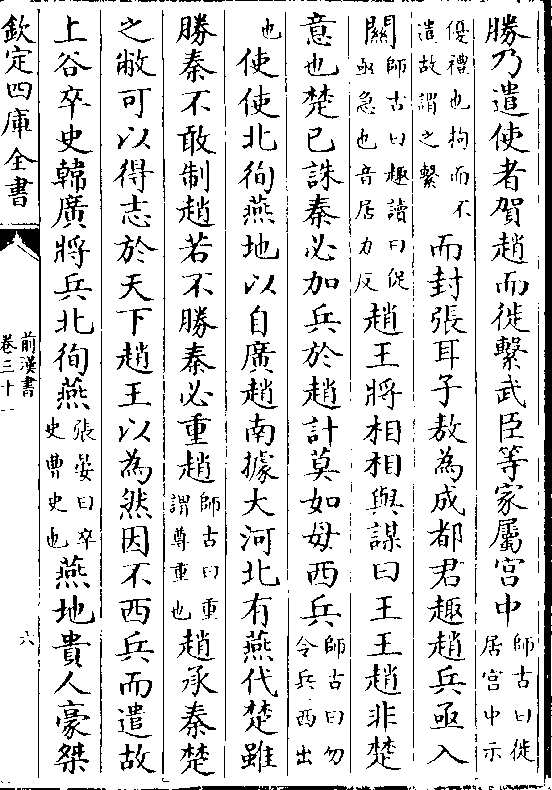 勝乃遣使者賀趙而徙繫武臣等家屬宮中師古曰徙居宮中示
優禮也拘而不遣故謂之繫而封張耳子敖為成都君趣趙兵亟入
關師古曰趣讀曰促亟急也音居力反趙王將相相與謀曰王王趙非楚
意也楚已誅秦必加兵於趙計莫如毋西兵師古曰勿令兵西出
也使使北徇燕地以自廣趙南據大河北有燕代楚雖
勝秦不敢制趙若不勝秦必重趙師古曰重謂尊重也趙承秦楚
之敝可以得志於天下趙王以為然因不西兵而遣故
上谷卒史韓廣將兵北徇燕張晏曰卒史曹史也燕地貴人豪桀
欽定四庫全書
前漢書
卷三十一
六